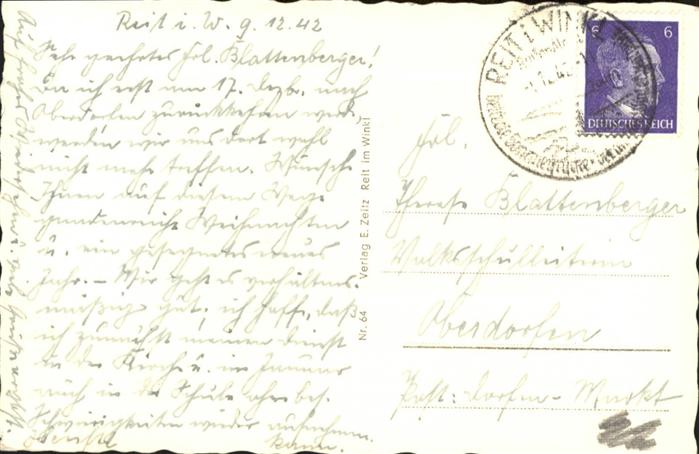 Reit i. W. 9.12.42
Sehr geehrtes Frl. Blattenberger!
Da ich erst am 17. Dezb. nach
Oberdorfen zurückkehren werde,
werden wir uns dort wohl
nicht mehr treffen. Wünsche
Ihnen auf diesem Wege
gnadenreiche Weihnachten
u. ein gesegnetes neues
Jahr. – Mir geht es verhältnis-
mäßig gut. ich hoffe, daß
ich zunächst meinen Dienst
in der Kirche u. im Januar
auch in der Schule ohne bes.
Schwierigkeiten wieder aufnehmen
kann.
Nr. 64 Verlag E. Zeitz Reit im Winkl
REIT i. WINKL
6 6
DEUTSCHES REICH
Frl.
Therese Blattenberger
Volksschulleiterin
Oberdorfen
Post: Dorfen-Markt